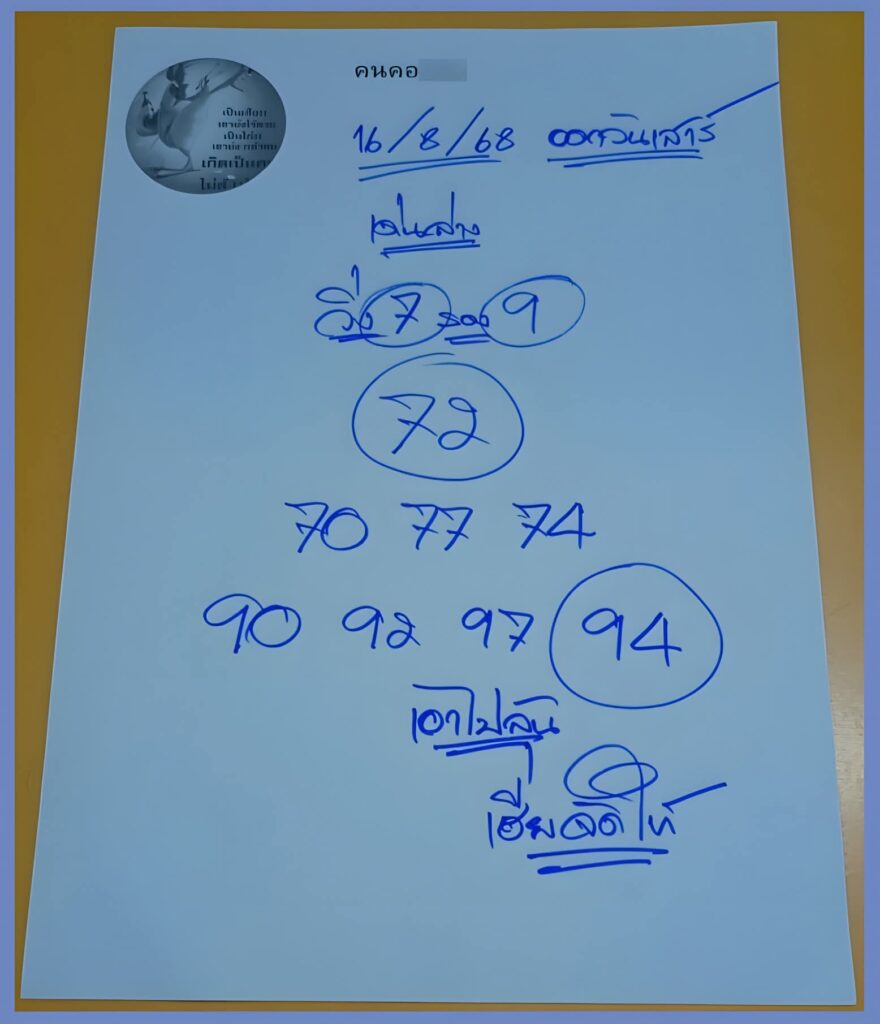 คนคอ
เป็นเสือก
เป็นไก่ก
เกิดเป็นค
16/8/68 ออกวันเสาร์
เด่นล่าง
วิ่ง 7 รอง 9
72
70 77 74
90 92 97 94
เอาไปลุ้น
เฮียจัดให้